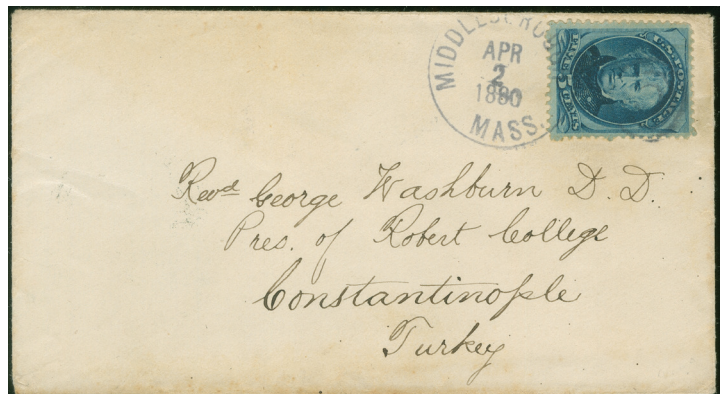 MIDDLEBOROUGH
APR
2
1880
MASS.
Revd George Washburn D. D.
Pres. of Robert College
Constantinople
Turkey